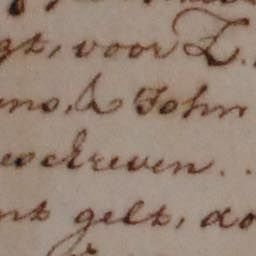 gt, voor Z.
ens, & John
eschreven..
nt gelt, do